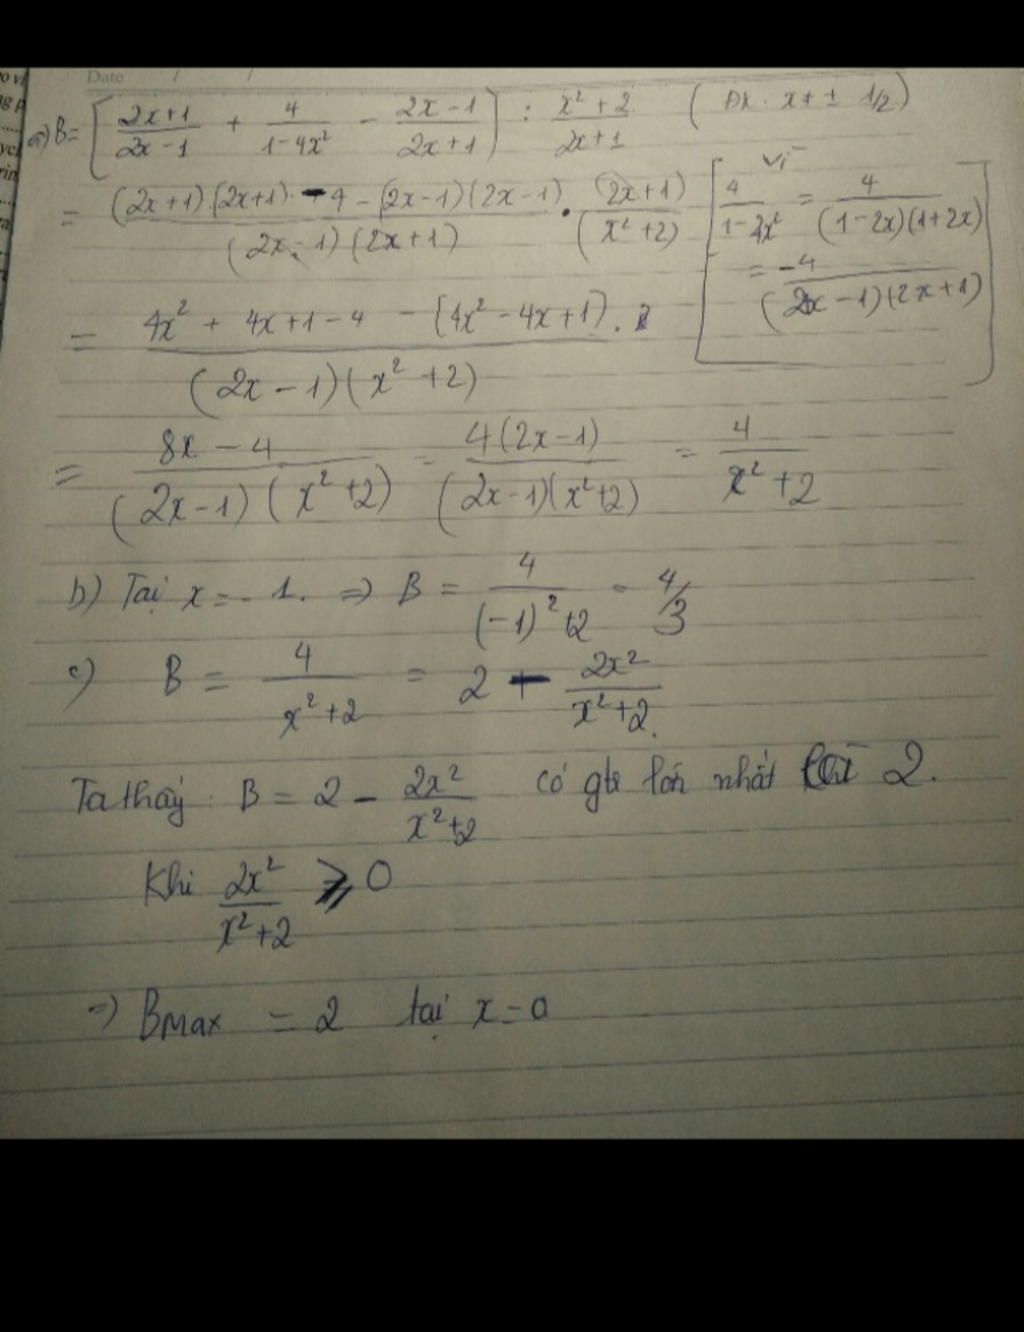 Date / /
a) B = [ (2x+1)/(2x-1) + 4/(1-4x²) - (2x-1)/(2x+1) ] : (x²+2)/(2x+1) (ĐK. x ≠ ± 1/2)
= ((2x+1).(2x+1) - 4 - (2x-1)(2x-1))/((2x-1)(2x+1)) . (2x+1)/(x²+2)
[ vì 4/(1-4x²) = 4/((1-2x)(1+2x))
= -4/((2x-1)(2x+1)) ]
= (4x² + 4x+1-4 - (4x²-4x+1))/((2x-1)(x²+2))
= (8x-4)/((2x-1)(x²+2)) = 4(2x-1)/((2x-1)(x²+2)) = 4/(x²+2)
b) Tại x = -1. => B = 4/((-1)²+2) = 4/3
c) B = 4/(x²+2) = 2 - 2x²/(x²+2).
Ta thấy: B = 2 - 2x²/(x²+2) có gtr lớn nhất 2.
Khi 2x²/(x²+2) ⩾ 0
=> BMax = 2 tại x = 0